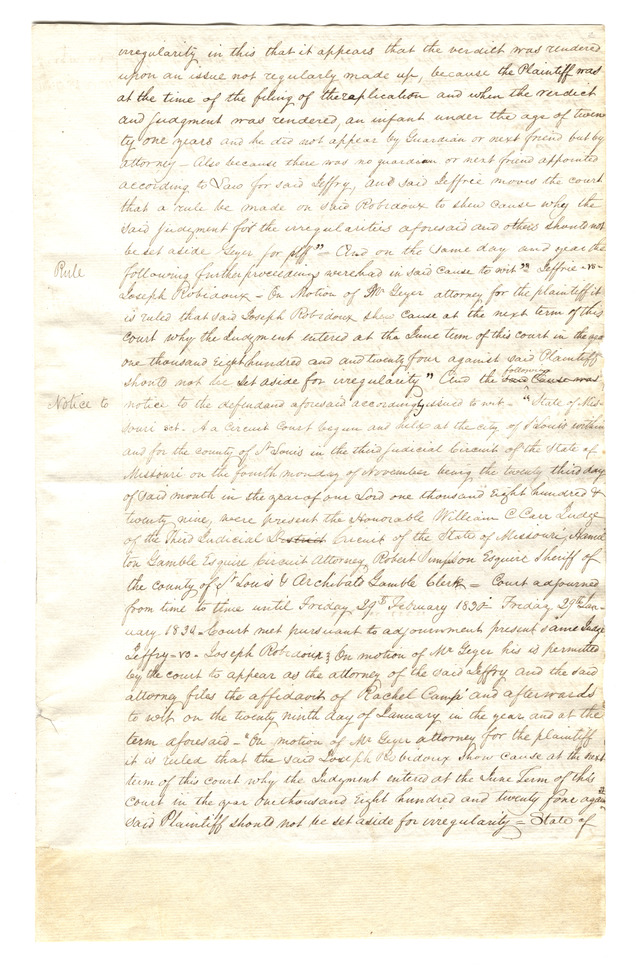 irregularity in this that it appears that the verdict was rendered
upon an issue not regularly made up, because the Plaintiff was
at the time of the filing of the replication and when the verdict
and Judgment was rendered, an infant under the age of twen
ty one years and he did not appear by Guardian or next friend but by
attorney – Also because there was no guardian or next friend appointed
according to Law for said Jeffry, and said Jeffrie moves the court
that a rule be made on said Robidoux to shew cause why the
said Judgment for the irregularities aforesaid and others should not
be set aside Geyer for plff" – And on the same day and year the
Rule
following further proceedings were had in said cause to wit " Jeffrie -vs-
Joseph Robidoux – On Motion of Mr Geyer attorney for the plaintiff it
is ruled that said Joseph Robidoux show cause at the next term of this
court why the Judgment entered at the June term of this court in the year
one thousand Eight hundred and and twenty four against said Plaintiff
should not be set aside for irregularity" And the following said Cause was
Notice to
notice to the defendand aforesaid accordingly issued to wit - "State of Mis-
souri sct. At a Circuit Court begun and held at the city of St Louis within
and for the county of St Louis in the third Judicial Circuit of the State of
Missouri on the fourth monday of November being the twenty third day
of said month in the year of our Lord one thousand Eight hundred &
twenty nine, were present the Honorable William C Carr Judge
of the Third Judicial District Circuit of the State of Missouri, Hamil
ton Gamble Esquire Circuit Attorney, Robert Simpson Esquire Sheriff of
the county of St Louis & Archibald Gamble Clerk = Court adjourned
from time to time until Friday 29th February 1830 Friday 29th Jan-
uary 1830. Court met pursuant to adjournment present same Judge
Jeffry -vs- Joseph Robidoux } On motion of Mr Geyer his is permitted
by the court to appear as the attorney of the said Jeffry and the said
attorney files the affidavit of Rachel Camp and afterwards
to wit on the twenty ninth day of January in the year and at the
term aforesaid – "On motion of Mr Geyer attorney for the plaintiff
it is ruled that the said Joseph Robidoux show cause at the next
term of this court why the Judgment entered at the June Term of this
court in the year One thousand Eight hundred and twenty four against
said Plaintiff should not be set aside for irregularity = State of